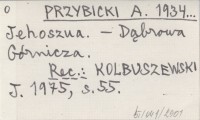 o PRZYBICKI A. 1934...
Jehoszua. – Dąbrowa
Górnicza.
Rec.: KOLBUSZEWSKI
J. 1975, s. 55.